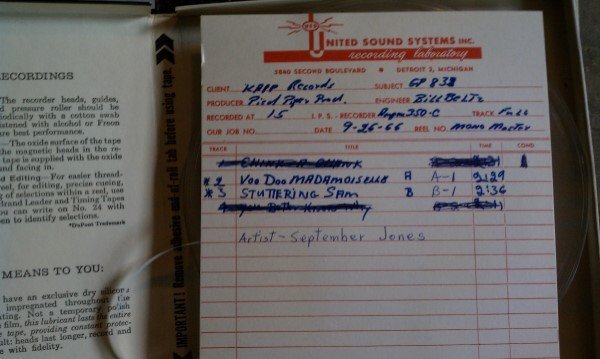 ECORDINGS
The recorder heads, guides,
d pressure roller should be
iodically with a cotton swab
istened with alcohol or Freon
ure best performance.
—The oxide surface of the tape
the magnetic heads in the re-
te tape is supplied with the oxide
and facing in.
d Editing—For easier thread-
reel, for editing, precise cueing,
g of selections within a reel, use
and Leader and Timing Tapes
you can write on No. 24 with
pen to identify selections.
*DuPont Trademark
MEANS TO YOU:
have an exclusive dry silicone
impregnated throughout the
ating. Not a temporary polish
e film, this lubricant lasts the entire
e tape, providing constant protec-
ult: heads last longer, record and
e with fidelity.
IMPORTANT! Remove adhesive end-of-roll tab before using tape.
USS
UNITED SOUND SYSTEMS INC.
recording laboratory
5840 SECOND BOULEVARD DETROIT 2, MICHIGAN
CLIENT KAPP Records SUBJECT GP 838
PRODUCER Pied Piper Prod. ENGINEER Bill Beltz
RECORDED AT 15 I. P. S. - RECORDER Ampex 350-C TRACK Full
OUR JOB NO. DATE 9-26-66 REEL NO. Mono Master
TRACK TITLE TIME COND
*2 VOO DOO MADAMOISELLE A A-1 2:29
*3 STUTTERING SAM B B-1 2:36
Artist - September Jones